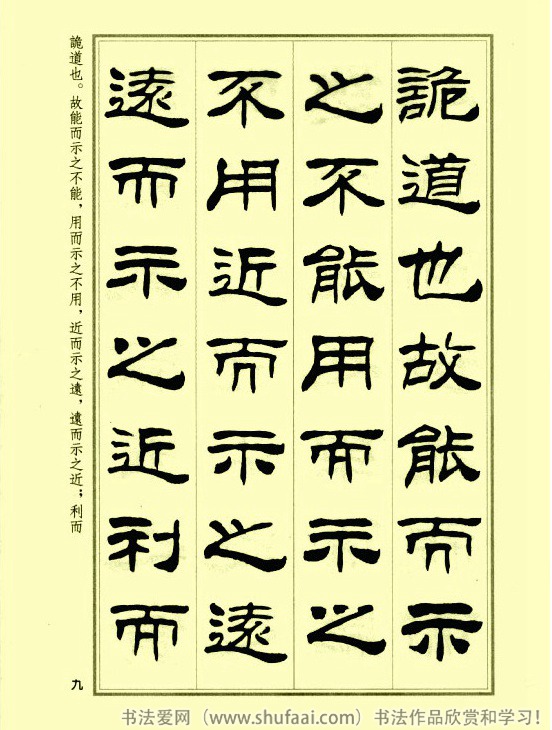 詭道也故能而示
之不能用而示之
不用近而示之遠
遠而示之近利而
詭道也。故能而示之不能，用而示之不用，近而示之遠，遠而示之近；利而
九
书法爱网（www.shufaai.com）书法作品欣赏和学习！